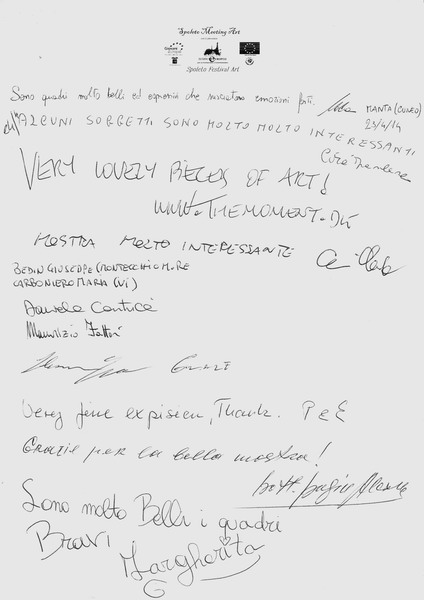 Spoleto Meeting Art
Spoleto Festival Art
Sono quadri molto belli ed espressivi che suscitano emozioni forti. MANTA (CUNEO)
23/4/14
ALCUNI SOGGETTI SONO MOLTO MOLTO INTERESSANTI
VERY LOVELY PIECES OF ART!
WWW.THEMOMENT.DK
MOSTRA MOLTO INTERESSANTE
BEDIN GIUSEPPE (MONTECCHIO M.RE
CARBONIERO MARIA (VI)
Daniela
Maurizio Fattori
Very fine expisien, Thank. P e E
Grazie per la bella mostra!
Dott.
Sono molto Belli i quadri
Bravi
Margherita